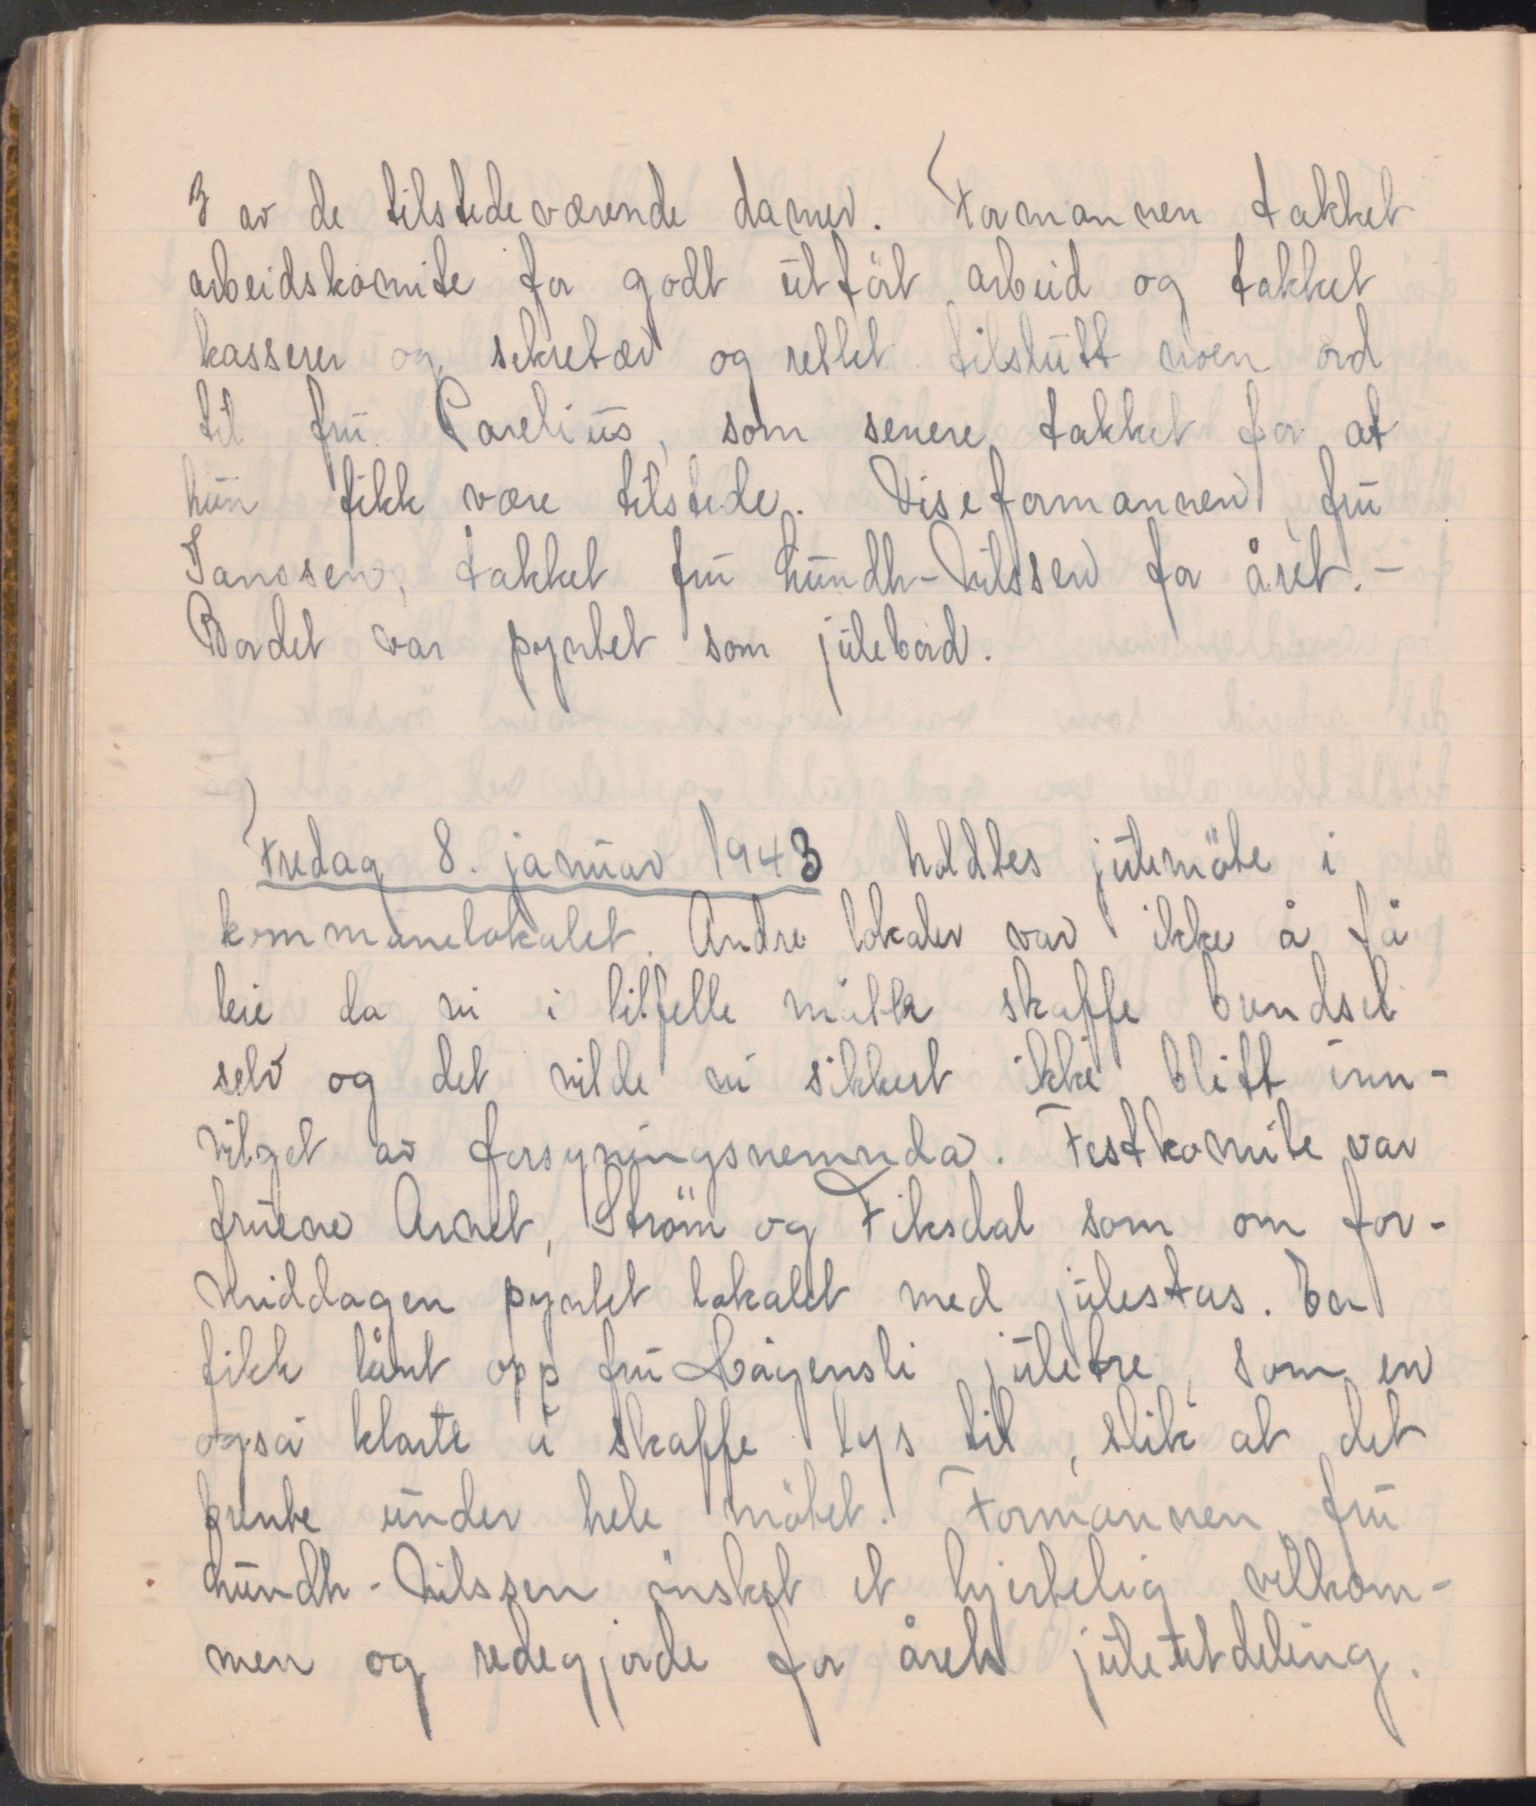 3 av de tilstedeværende damer. Formannen takket
arbeidskomite for godt utfört arbeid og takket
kasserer og sekretær og rettet tilslutt noen ord
til fru Parelius, som senere takket for at
hun fikk være tilstede. Viseformannen, fru
Janssen, takket fru Lundh-Nilssen for året. -
Bordet var pyntet som julebord.
Fredag 8. januar 1943 holdtes julemöte i
kommunelokalet. Andre lokaler var ikke å få
leie da vi i tilfelle måtte skaffe brendsel
selv og det vilde vi sikkert ikke blitt inn-
vilget av forsyningsnemnda. Festkomite var
fruene Arnet, Ström og Fiksdal som om for-
middagen pyntet lokalet med julestas. En
fikk lånt opp fru Hågensli juletre, som en
også klarte å skaffe lys til, slik at det
brente under hele mötet. Formannen, fru
Lundh-Nilssen önsket et hjertelig velkom-
men og redegjorde for årets juleutdeling.